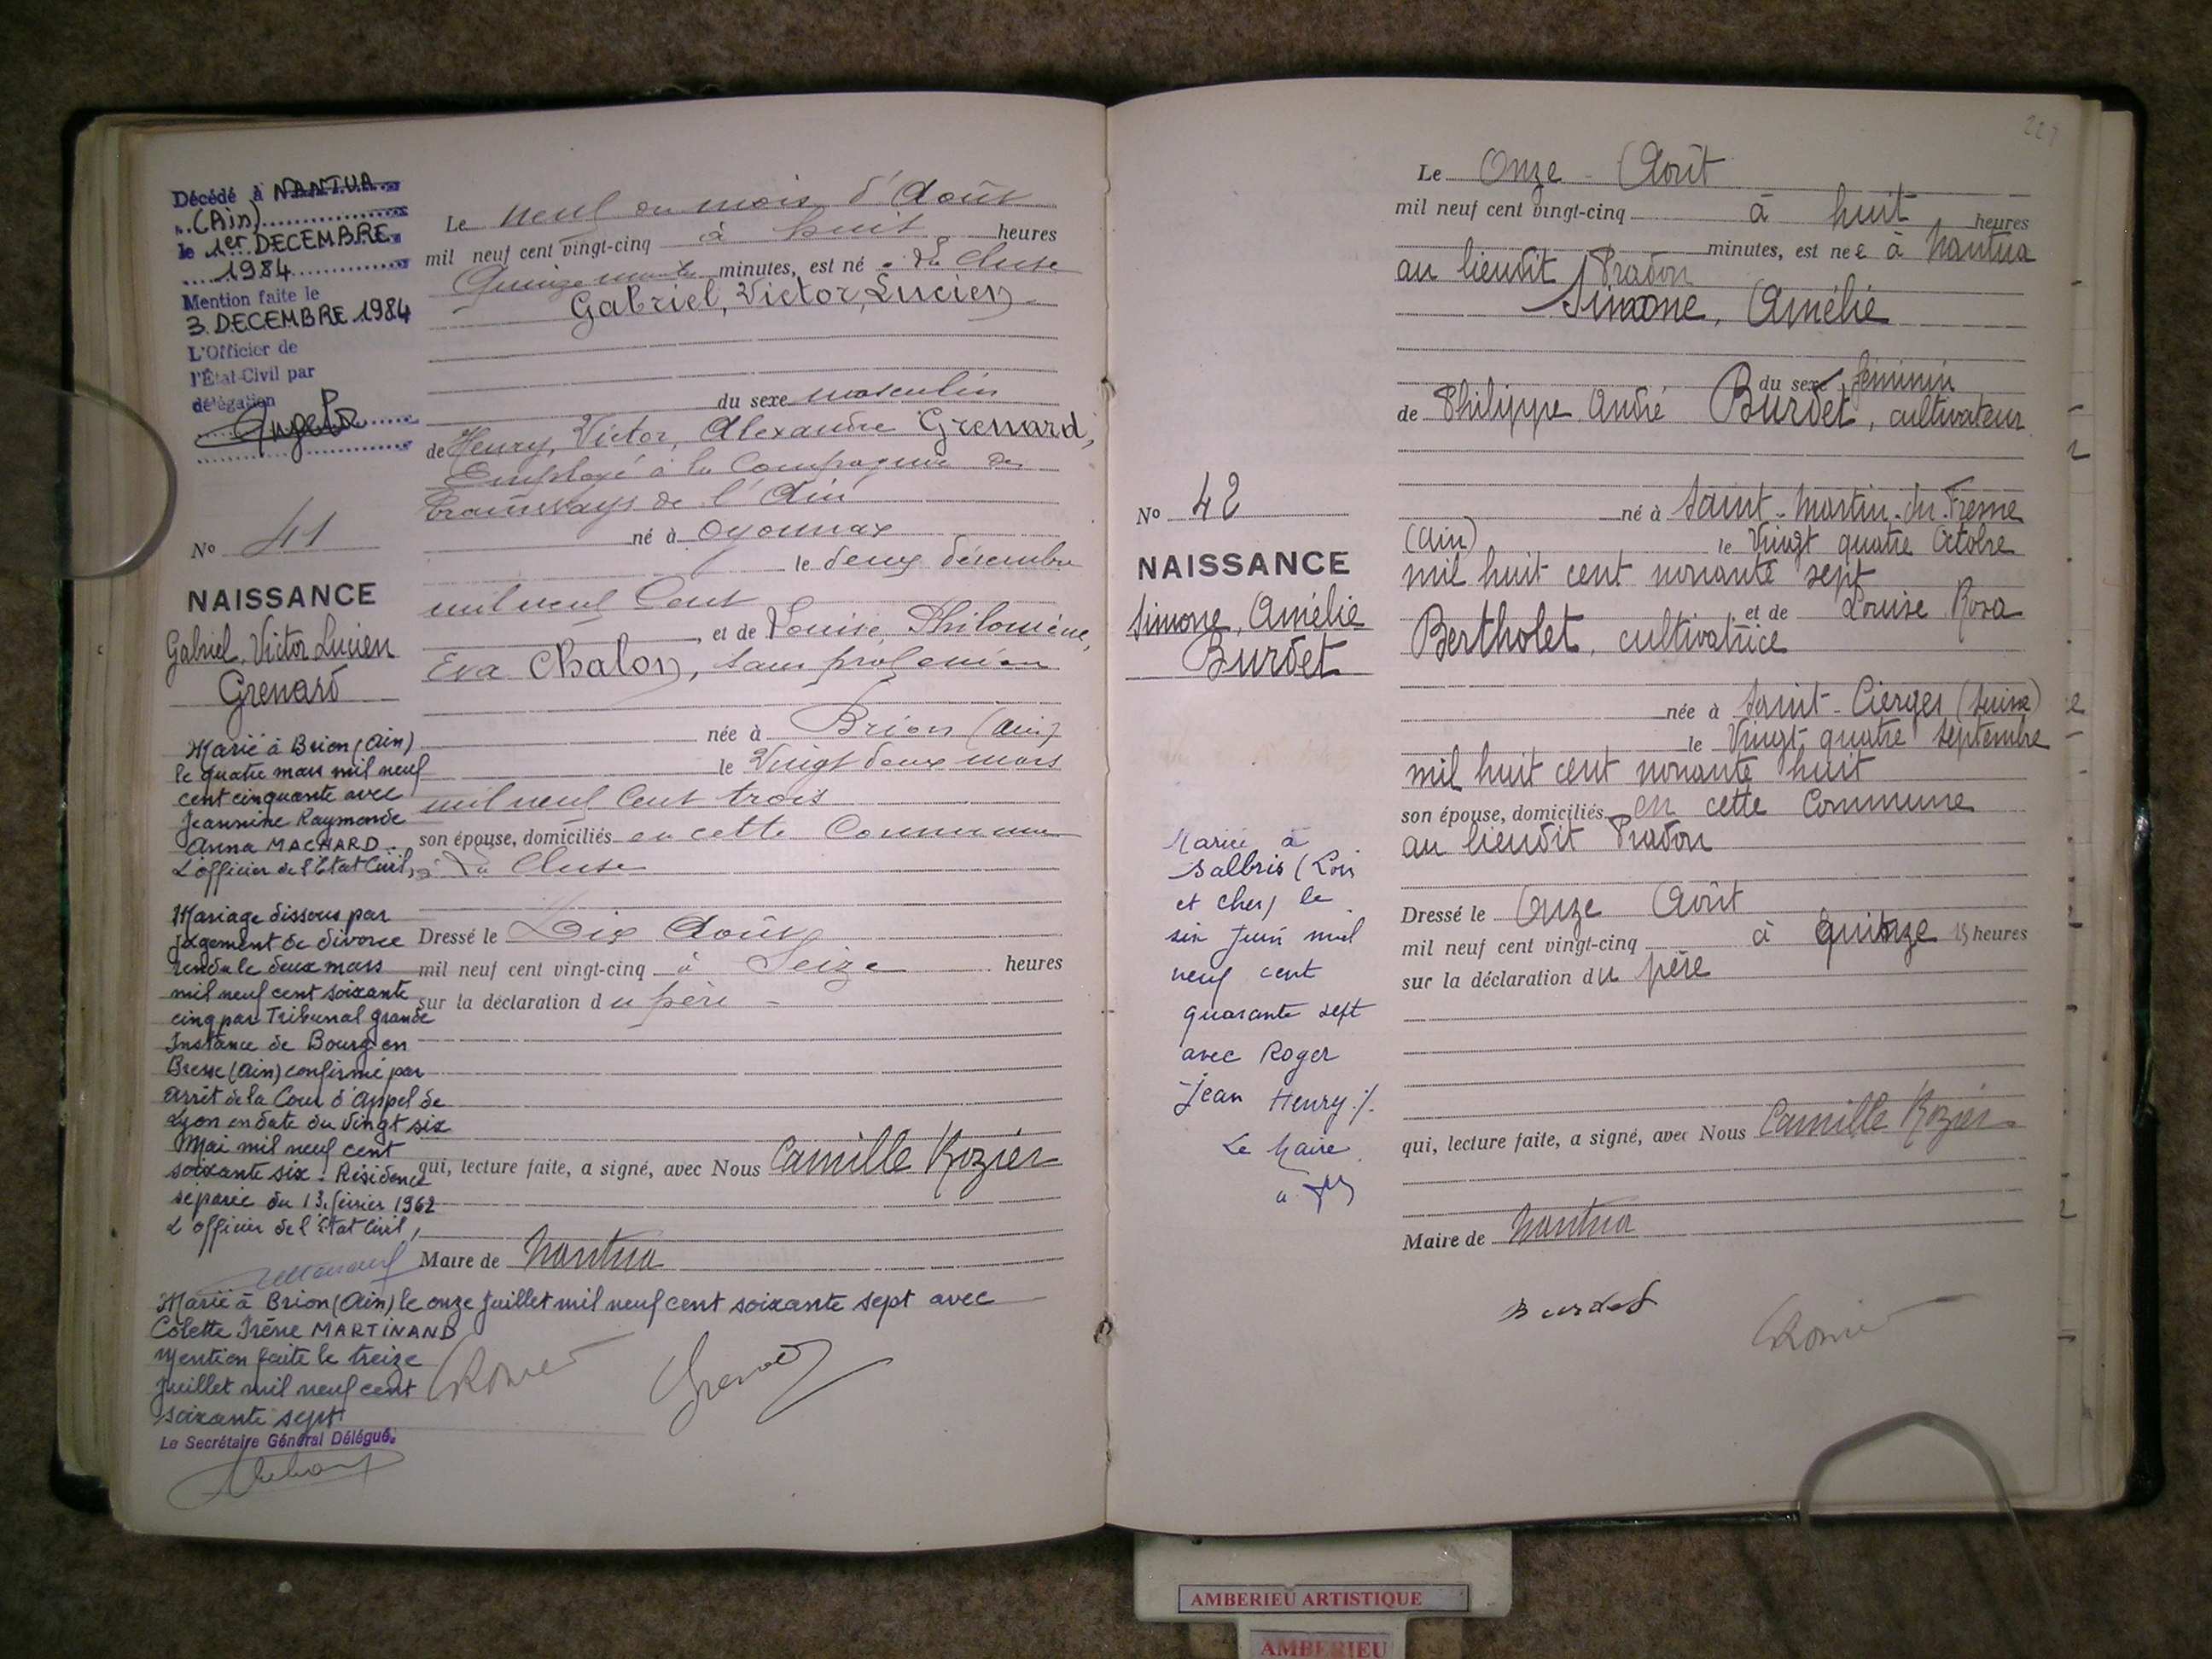 Décédé à NANTUA
(Ain)
le 1er DECEMBRE
1984
Mention faite le
3 DECEMBRE 1984
L'Officier de
l'État-Civil par
délégation
No 41
NAISSANCE
Gabriel, Victor Lucien
Grenard
Marié à Brion (Ain)
le quatre mars mil neuf
cent cinquante avec
Jeannine Raymonde
Anna MACHARD.
L'officier de l'Etat Civil,
Mariage dissous par
jugement de divorce
rendu le deux mars
mil neuf cent soixante
cinq par Tribunal grande
Instance de Bourg en
Bresse (Ain) confirmé par
arrêt de la Cour d'Appel de
Lyon en date du vingt six
Mai mil neuf cent
soixante six. Résidence
séparée du 13 février 1962
L'officier de l'Etat Civil,
Marié à Brion (Ain) le onze Juillet mil neuf cent soixante sept avec
Colette Irène MARTINAND
Mention faite le treize
Juillet mil neuf cent
soixante sept
Le Secrétaire Général Délégué.
Le neuf du mois d'Août
mil neuf cent vingt-cinq à huit heures
Quinze minutes, est né à La Cluse
Gabriel, Victor, Lucien
du sexe masculin
de Henry, Victor, Alexandre Grenard,
Employé à la Compagnie des
Tramways de l'Ain
né à Oyonnax
le deux décembre
mil neuf Cent
, et de Louise, Philomène,
Eva Chalon, sans profession
née à Brion (Ain)
le Vingt deux mars
mil neuf Cent trois
son épouse, domiciliés en cette Commune
à La Cluse
Dressé le Dix Août
mil neuf cent vingt-cinq à Seize heures
sur la déclaration du père
qui, lecture faite, a signé, avec Nous Camille Rozier
Maire de Nantua
Grenard
No 42
NAISSANCE
Simone, Amélie
Burdet
Mariée à
Salbris (Loir
et cher) le
six Juin mil
neuf cent
quarante sept
avec Roger
Jean Henry ./.
Le Maire
Le Onze Août
mil neuf cent vingt-cinq à huit heures
minutes, est née à Nantua
au lieudit Pradon
Simone, Amélie
du sexe féminin
de Philippe André Burdet, cultivateur
né à Saint-Martin-du-Fresne
(Ain) le Vingt quatre Octobre
mil huit cent nonante sept
et de Louise Rosa
Bertholet, cultivatrice
née à Saint-Cierges (Suisse)
le Vingt quatre Septembre
mil huit cent nonante huit
son épouse, domiciliés en cette Commune
au lieudit Pradon
Dressé le Onze Août
mil neuf cent vingt-cinq à quinze 15 heures
sur la déclaration du père
qui, lecture faite, a signé, avec Nous Camille Rozier
Maire de Nantua
Burdet
AMBERIEU ARTISTIQUE
AMBERIEU